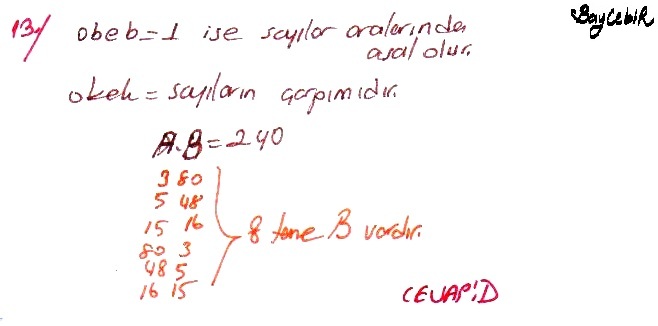 BayCebiR
13) obeb=1 ise sayılar aralarında
asal olur.
okek = sayıların çarpımıdır.
A.B=240
3 80
5 48
15 16
80 3
48 5
16 15
8 tane B vardır.
CEVAP:D